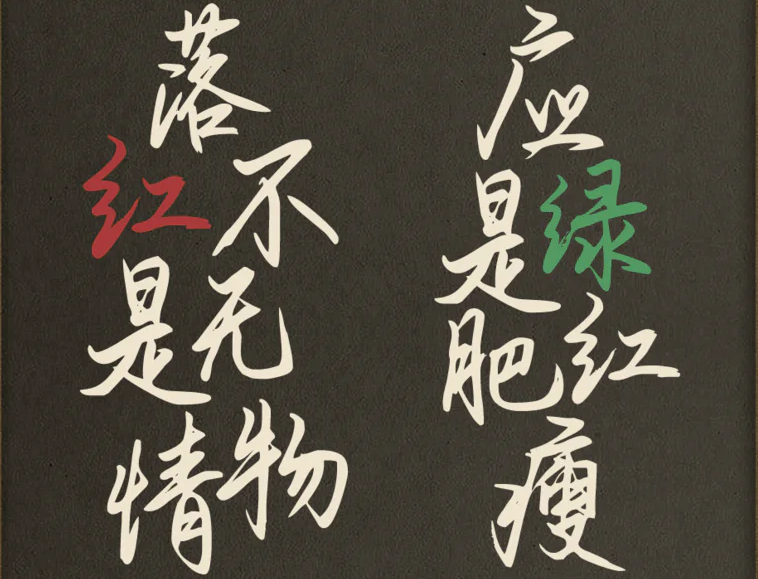 应
是绿
肥红
瘦
落
红不
是无
情物